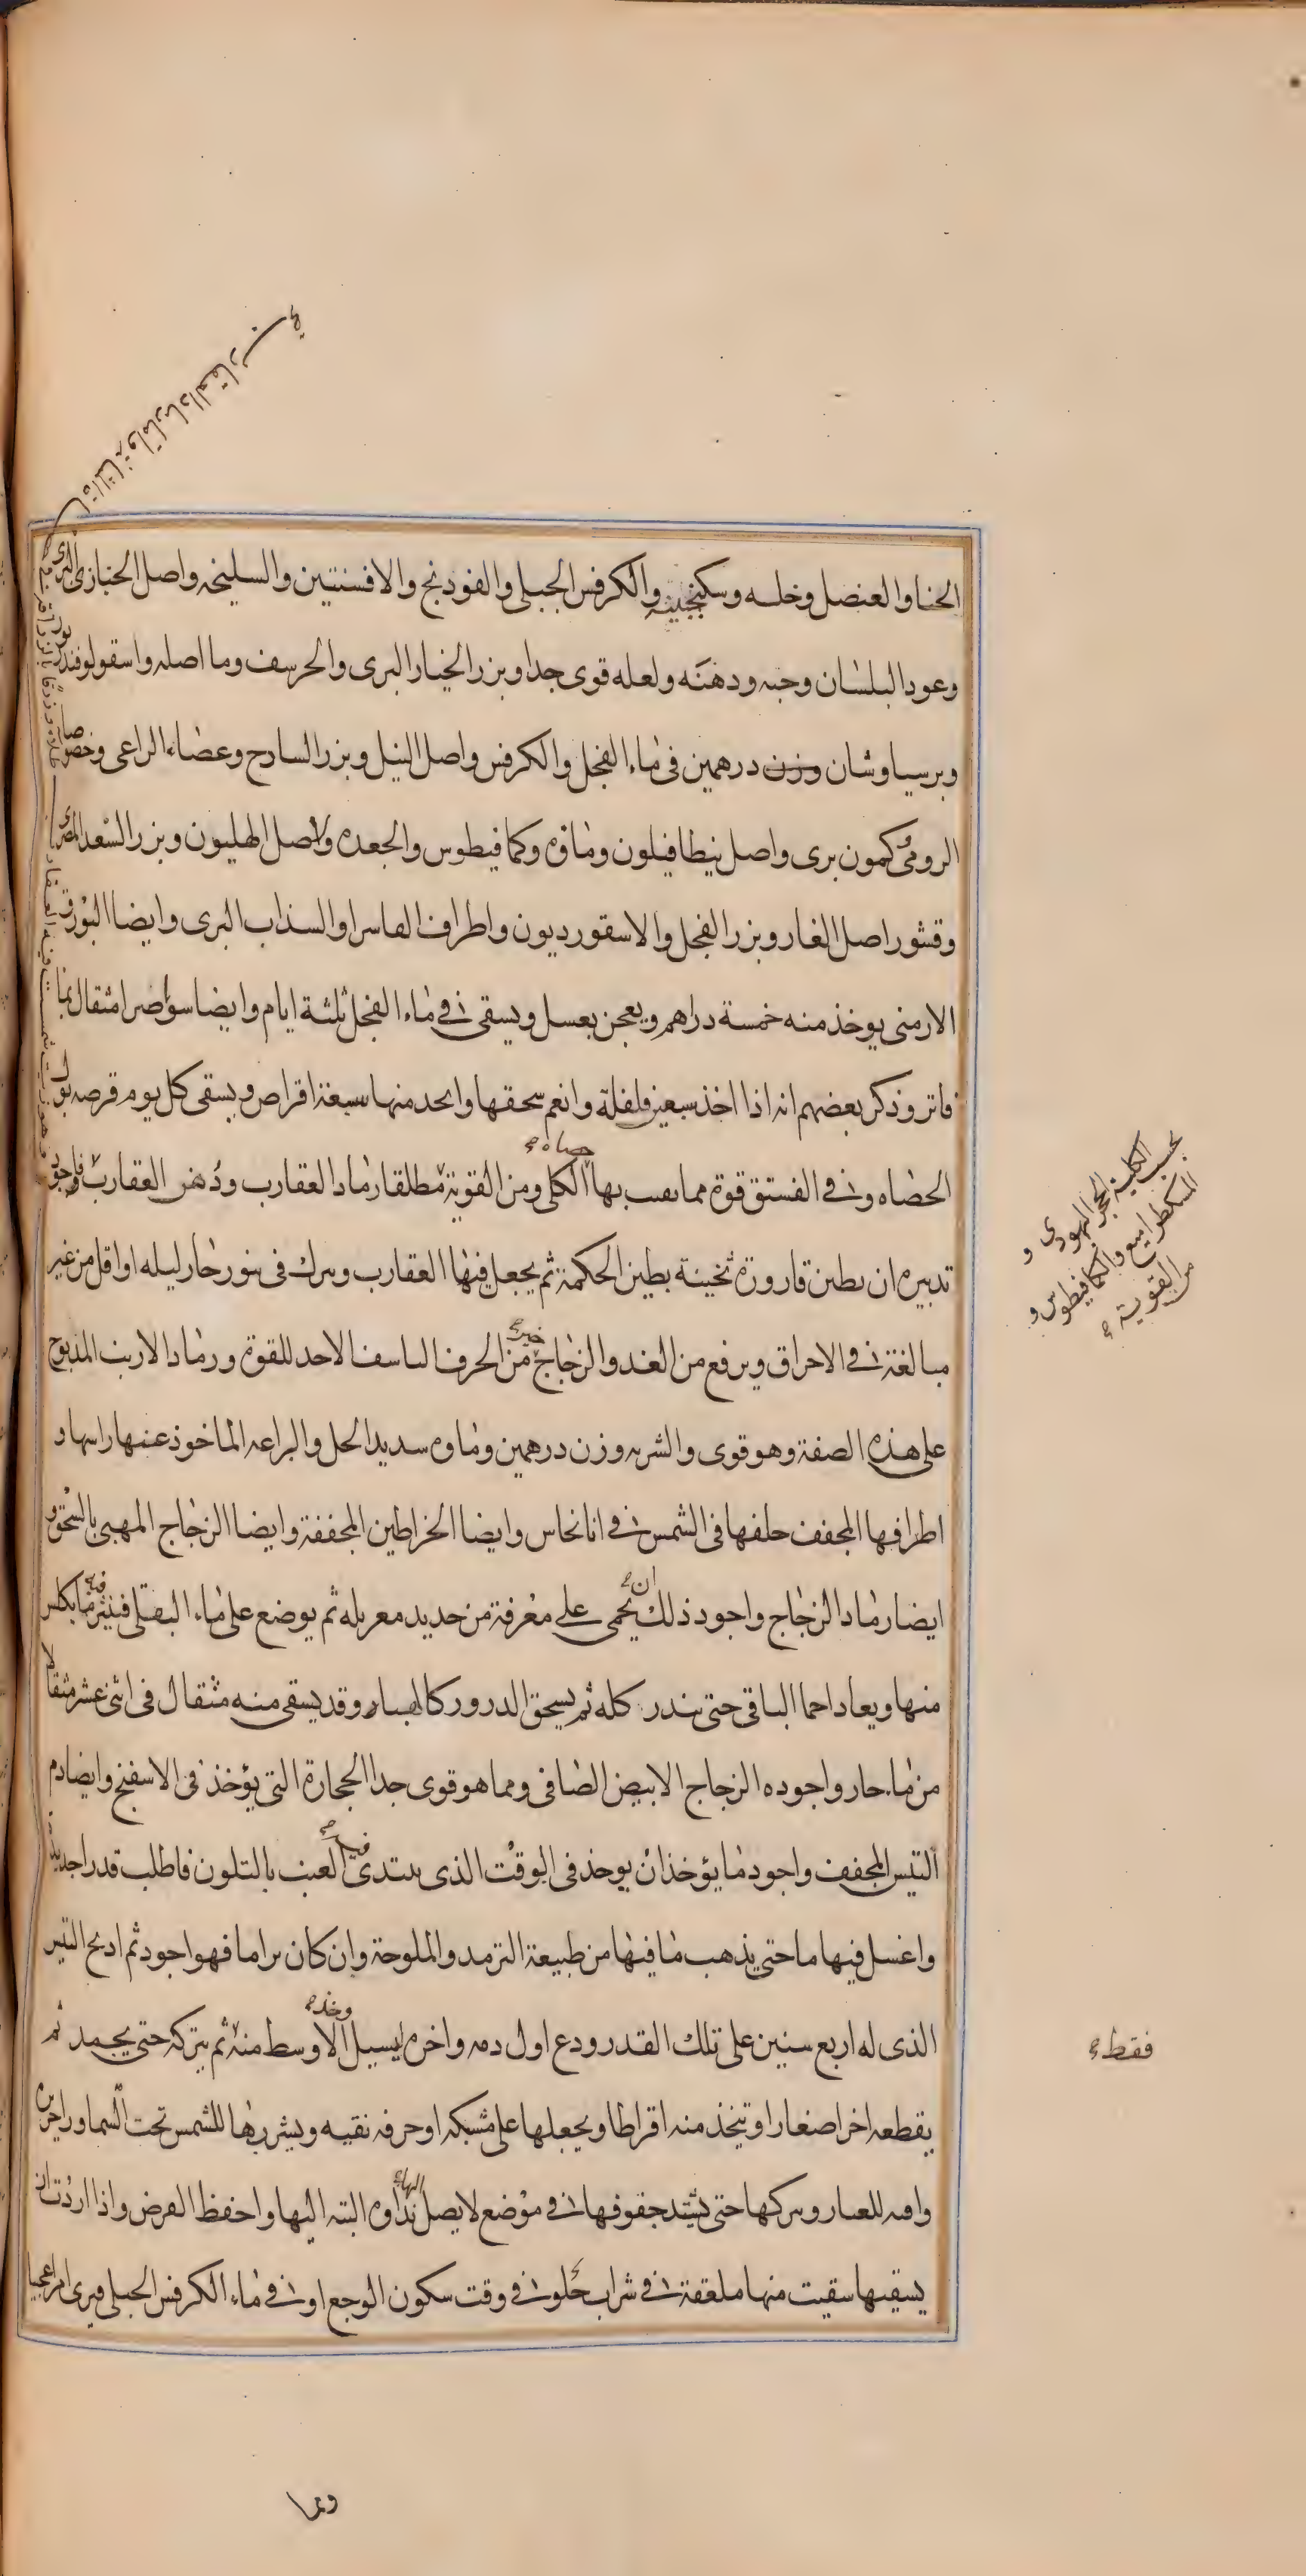 الحنا والعنصل وخله وسكنجبينه والكرفس الجبلى والفودنج والافسنتين والسليخه واصل الخبازى البرى
وعود البلسان وحبه ودهنه ولعله قوى جدا وبزر الخيار البرى والحرسف وما اصله واسقولوفندريون
وبرسياوشان وزن درهمين فى ماء الفجل والكرفس واصل النيل وبزر السادح وعصاء الراعى وخصوصا
الرومى كمون برى واصل بنطافيلون وماؤه وكمافيطوس والجعده واصل الهليون وبزر السعد المصرى
وقشور اصل الغار وبزر الفجل والاسقورديون واطراف الفاسرا والسذاب البرى وايضا البورق
الارمنى يوخذ منه خمسة دراهم ويعجن بعسل ويسقى فى ماء الفجل ثلثة ايام وايضا سواصرا مثقال بما
فاتر وذكر بعضهم انه اذا اخذ سبعين فلفلة وانعم سحقها واتخد منها سبعة اقراص ويسقى كل يوم قرصه بول
الحصاه وفى الفستق قوة مما بها حصاه الكلى ومن القوية مطلقا رماد العقارب ودهن العقارب واجود
تدبيره ان يطين قارورة ثخينة بطين الحكمة ثم يجعل فيها العقارب ويترك فى تنور حار ليله او اقل من غير
مبالغة فى الاحراق ويرفع من الغد والزجاج خير من الحرف الاحد للقوة ورماد الارنب المذبوح
على هذه الصفة وهو قوى والشربه وزن درهمين وماوه سديد الحل والبراعه الماخوذ عنها راسها و
اطرافها المجفف حلفها فى الشمس فى انا نحاس وايضا الخراطين المجففة وايضا الزجاج المهبى بالسحق و
ايضا رماد الزجاج واجود ذلك ان يحمى على مغرفة من حديد معربله ثم يوضع على ماء البقلى فينثر فيه ما يكلس
منها ويعاد احما الباقى حتى يندر كله ثم يسحق الدرور كالهبا وقد يسقى منه مثقال فى اثنى عشر مثقالا
من ما حار واجوده الزجاج الابيض الصافى ومما هو قوى جدا الحجارة التى يؤخذ فى الاسفنج وايضا دم
التيس المجفف واجود ما يؤخذ ان يوخذ فى الوقت الذى يبتدى فيه العنب بالتلون فاطلب قدرا جديدة
واغسل فيها ما حتى يذهب ما فيها من طبيعة الترمد والملوحة وان كان براما فهو اجود ثم ادبح التيس
الذى له اربع سنين على تلك القدر ودع اول دمه واخره يسيل وخذ الاوسط منه ثم يتركه حتى يجمد ثم
يقطعه اخرا صغارا او تتخذ منه اقراطا ويجعلها على شبكه او حرفه نقيه وينشرها للشمس تحت السما ورا حريره
واقيه للغبار ويتركها حتى يشتد جفوفها فى موضع لا يصل اليها نداوه البته اليها واحفظ القرص واذا اردت ان
يسقيها سقيت منها ملعقة فى شراب حلو فى وقت سكون الوجع او فى ماء الكرفس الجبلى فيرى امرا عجيبا
بحسب الكلية الحجر اليهودى و
المسكطرامشيع والكمافيطوس و
من القوية
فقط